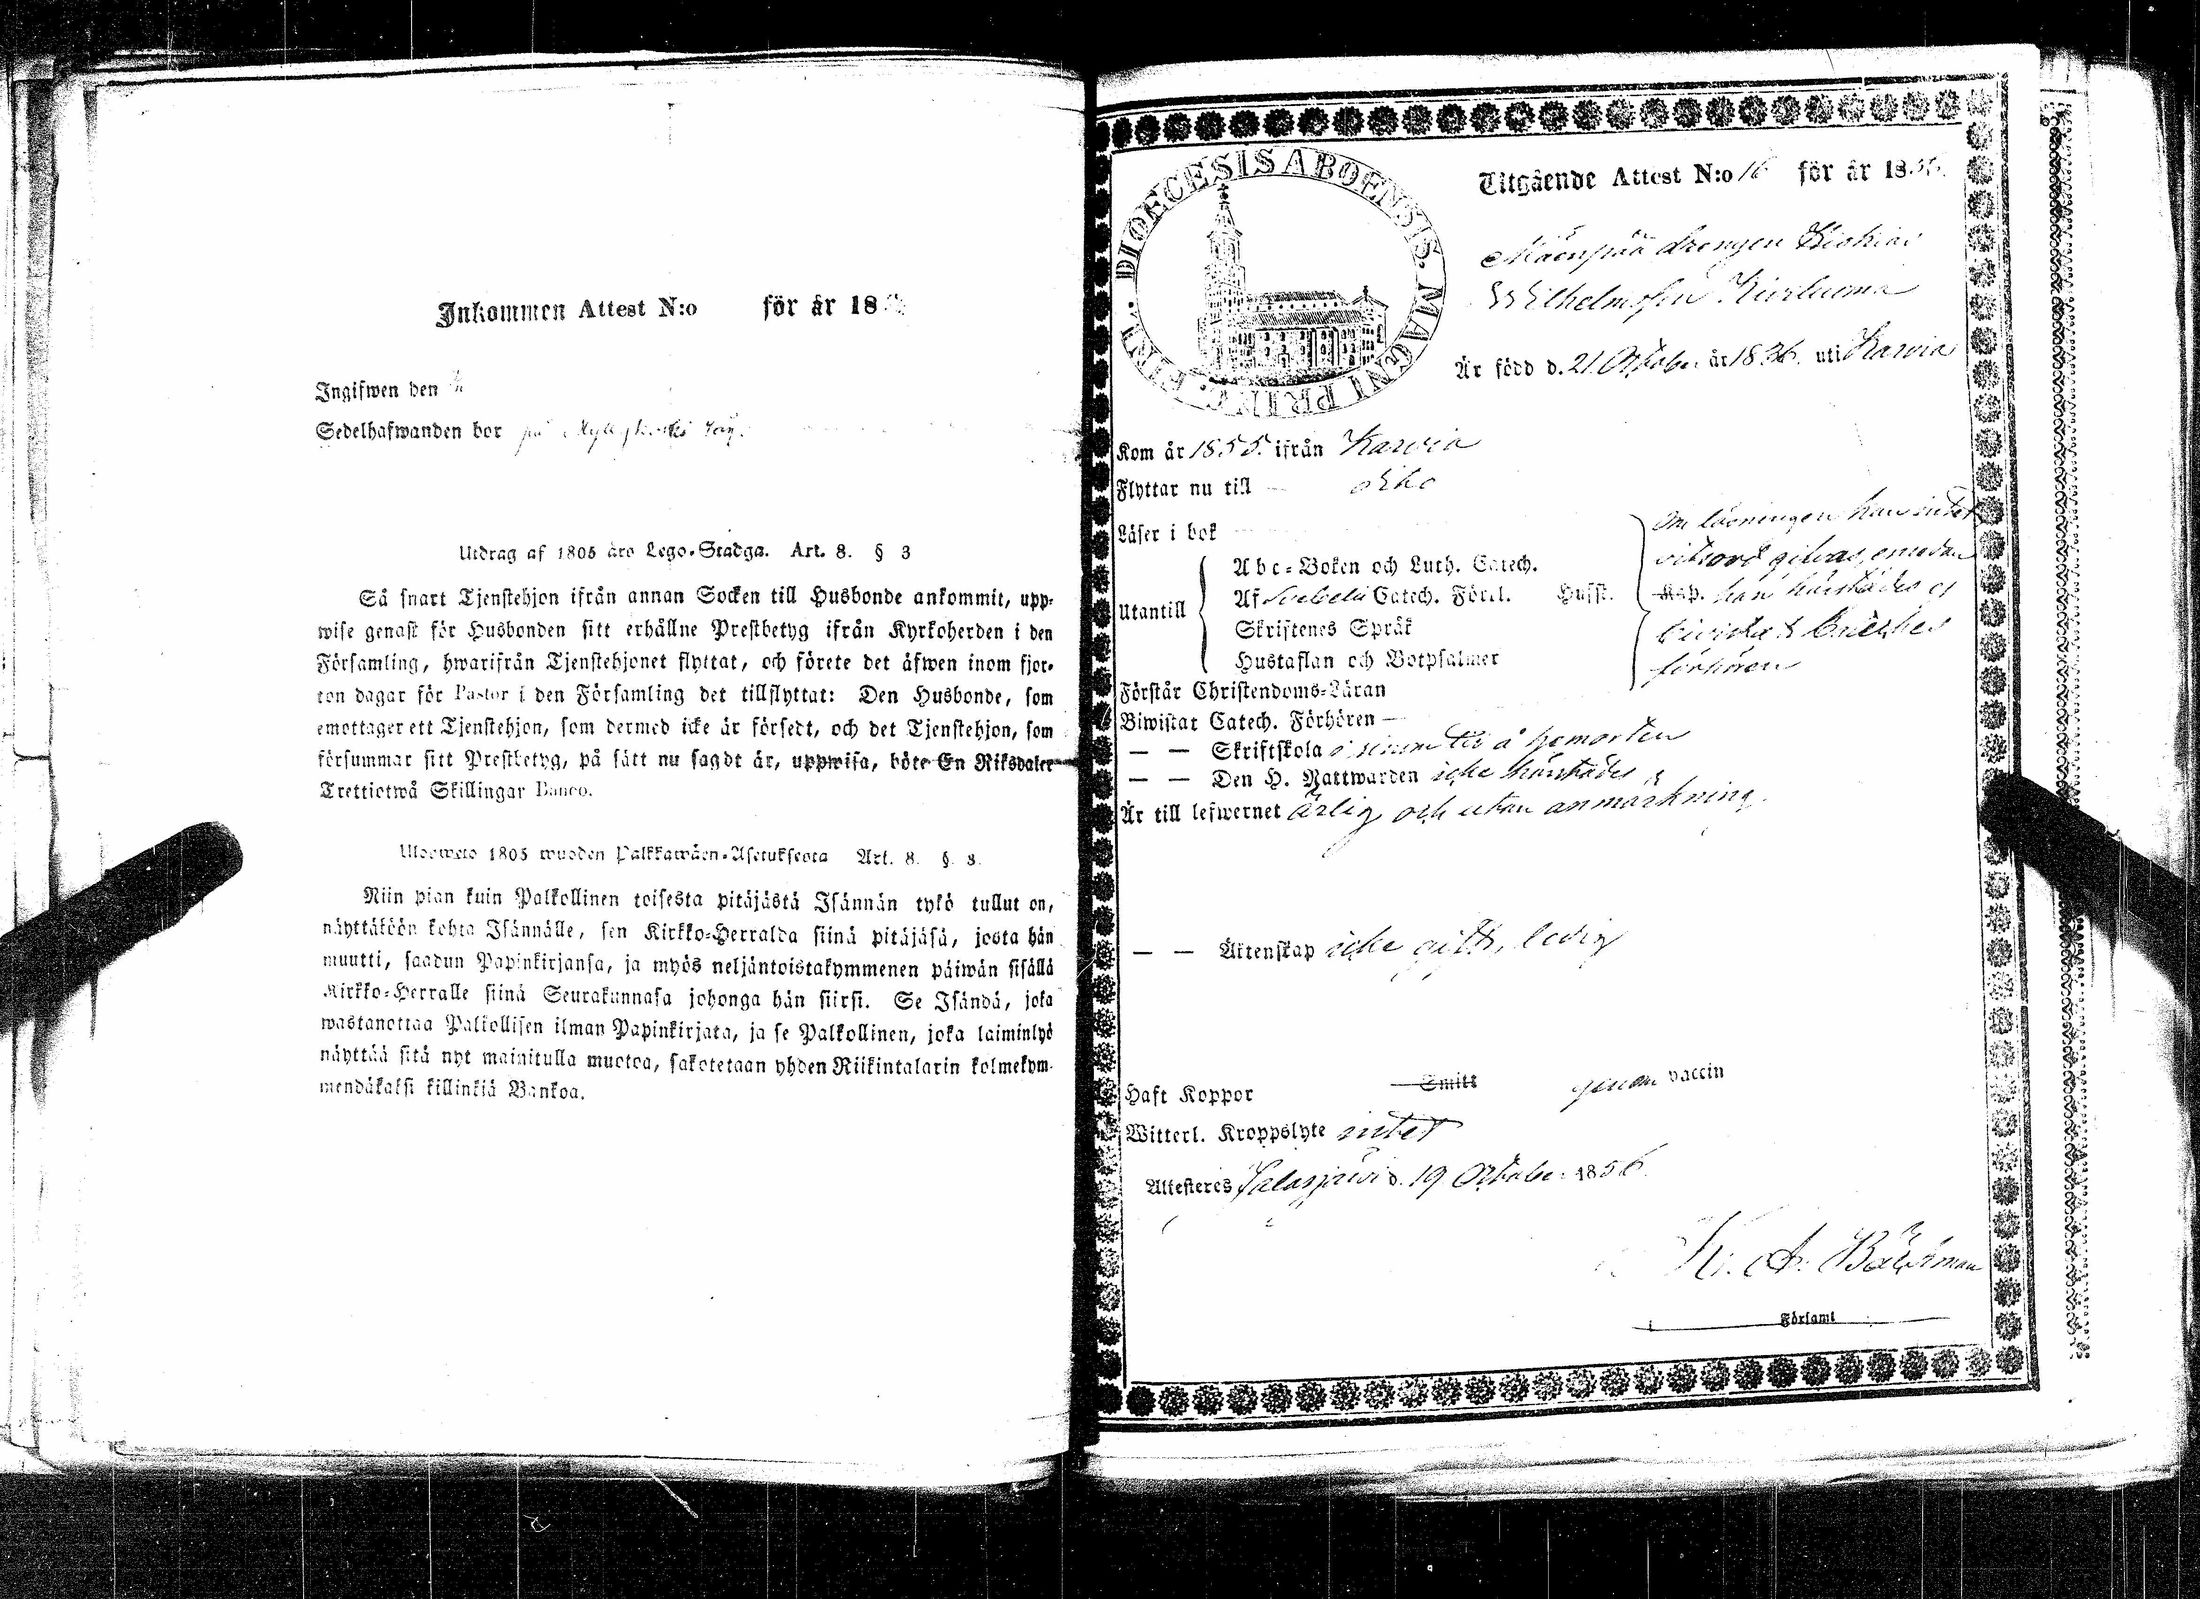 Inkommen Attest N:o för år 18
Ingifwen den
Sedelhafwanden bor på
Utdrag af 1805 års Lego-Stadga. Art. 8. § 3
Så snart Tjenstehjon ifrån annan Socken till Husbonde ankommit, upp-
wise genast för Husbonden sitt erhållne Prestbetyg ifrån Kyrkoherden i den
Församling, hwarifrån Tjenstehjonet flyttat, och förete det äfwen inom fjor-
ton dagar för Pastor i den Församling det tillflyttat: Den Husbonde, som
emottager ett Tjenstehjon, som dermed icke är försedt, och det Tjenstehjon, som
försummar sitt Prestbetyg, på sätt nu sagdt är, uppwisa, böte En Riksdaler
Trettiotwå Skillingar Banco.
Ulosweto 1805 wuoden Palkkawäen-Asetuksesta Art. 8. §. 3.
Niin pian kuin Palkollinen toisesta pitäjästä Isännän tykö tullut on,
näyttäköön kohta Isännälle, sen Kirkko-Herralda siinä pitäjäsä, josta hän
muutti, saadun Papinkirjansa, ja myös neljäntoistakymmenen päiwän sisällä
Kirkko-Herralle siinä Seurakunnasa johonga hän siirsi. Se Isändä, joka
wastanottaa Palkollisen ilman Papinkirjata, ja se Palkollinen, joka laiminlyö
näyttää sitä nyt mainitulla muotoa, sakotetaan yhden Riikintalarin kolmekym-
mendäkaksi killinkiä Bankoa.
DIOECESIS ABOENSIS. MAGNI PRINC. FINL.
Utgående Attest N:o 16 för år 185
Mäenpää drengen
Wilhelmsson Kiviluoma
Är född d. 21 Oktober år 1836 uti Karvia
Kom år 1855 ifrån Karvia
Flyttar nu till
Läser i bok
Om läsningen kan intet
vitsord gifvas, emedan
han härstädes ej
bivistat
förhören
Utantill
Abc-Boken och Luth. Catech.
Af Svebelii Catech. Förkl. Husst. Kap.
Skriftenes Språk
Hustaflan och Botpsalmer
Förstår Christendoms-Läran
Biwistat Catech. Förhören —
— — Skriftskola i sinom tid å hemorten
— — Den H. Nattwarden icke härstädes
Är till lefwernet ärlig och utan anmärkning.
— — Äktenskap icke gift, ledig
Haft Koppor Smitt genom vaccin
Witterl. Kroppslyte intet
Attesteres Jalasjärvi d. 19 Oktober 1856
K. A. Bäckman
Församl